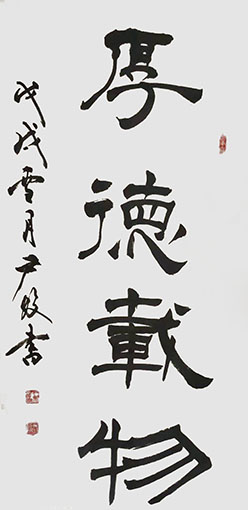 厚德載物
戊戌雪月尹毅書